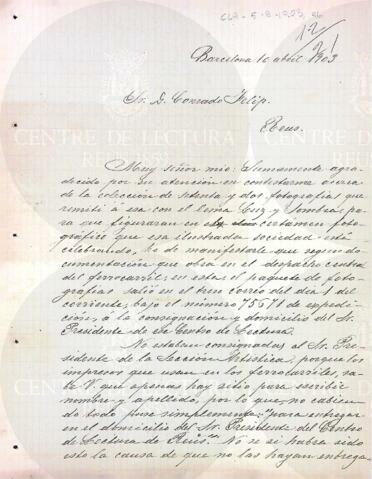 Barcelona 16 abril 1903
Sr. D. Conrado Felip.
Reus.
Muy señor mio: Sumamente agra-
decido por su atención en contestarme acerca
de la colección de setenta y dos fotografías que
remití á esa con el lema Luz y Sombra, pa-
ra que figuraran en el certamen fo-
tográfico que esa ilustrada sociedad está
celebrando, he de manifestarle que según do-
cumentación que obra en el despacho central
del ferrocarril en esta, el paquete de foto-
grafías salió en el tren correo del día 1 del
corriente, bajo el número 75571 de expedi-
ción, á la consignación y domicilio del Sr.
Presidente de ese Centro de Lectura.
No estaban consignadas al Sr. Presi-
dente de la Sección Artística, porque los
impresos que usan en los ferrocarriles, sa-
be V. que apenas hay sitio para escribir
nombre y apellido, por lo que, no cabien-
do todo puse simplemente: "para entregar
en el domicilio del Sr. Presidente del Centro
de Lectura de Reus". No se si habrá sido
esto la causa de que no las hayan entrega
CENTRE DE LECTURA
REUS 1859
CENTRE DE LECTURA
REUS